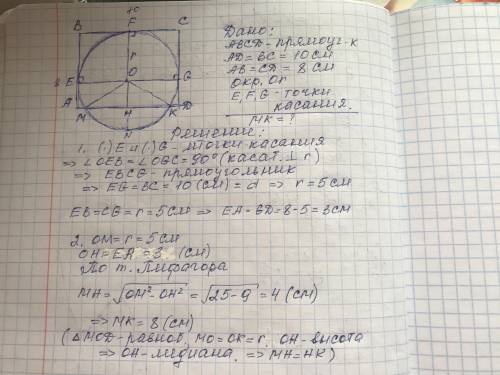 10
B F C
r
8 E O G
A M H K D
N
Дано:
ABCD - прямоуг-к
AD = BC = 10 см
AB = CD = 8 см
Окр. Or
E, F, G - точки
касания.
MK = ?
Решение:
1. (·) E и (·) G - точки касания
⇒ ∠OEB = ∠OGC = 90° (касат. ⊥ r)
⇒ EBCG - прямоугольник
⇒ EG = BC = 10 (см) = d ⇒ r = 5 см
EB = CG = r = 5 см ⇒ EA = GD = 8 - 5 = 3 см
2. OM = r = 5 см
OH = EA = 3 (см)
По т. Пифагора
MH = √OM² - OH² = √25 - 9 = 4 (см)
⇒ MK = 8 (см)
(△MOD - равноб, MO = OK = r, OH - высота
⇒ OH - медиана, ⇒ MH = HK)